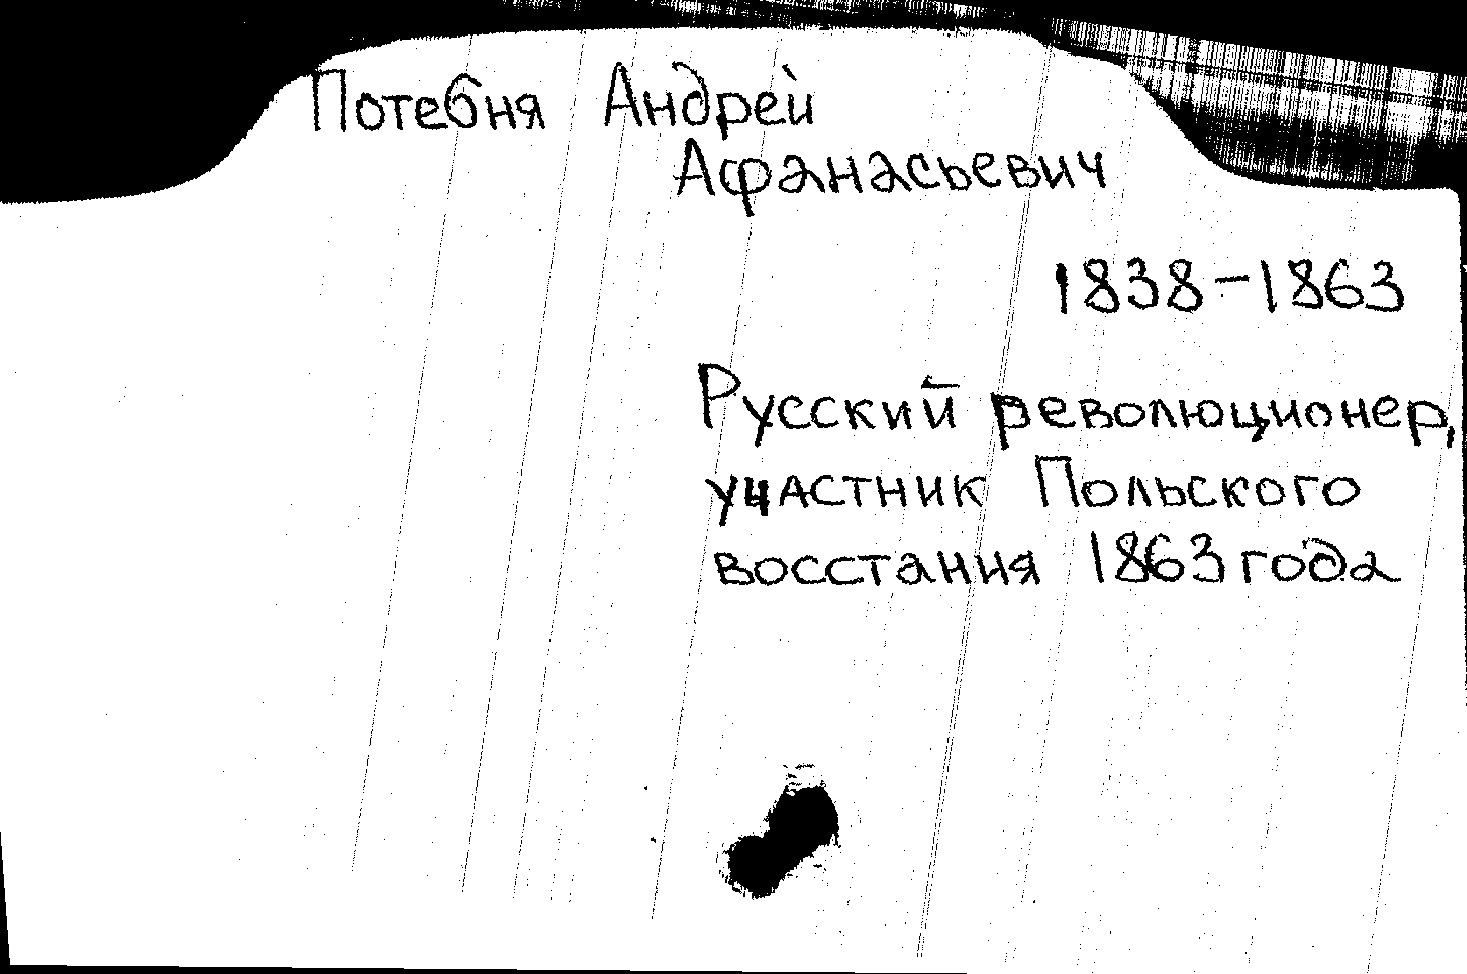 Потебня Андрей
Афанасьевич
1838-1863
Русский революционер,
участник Польского
восстания 1863 года